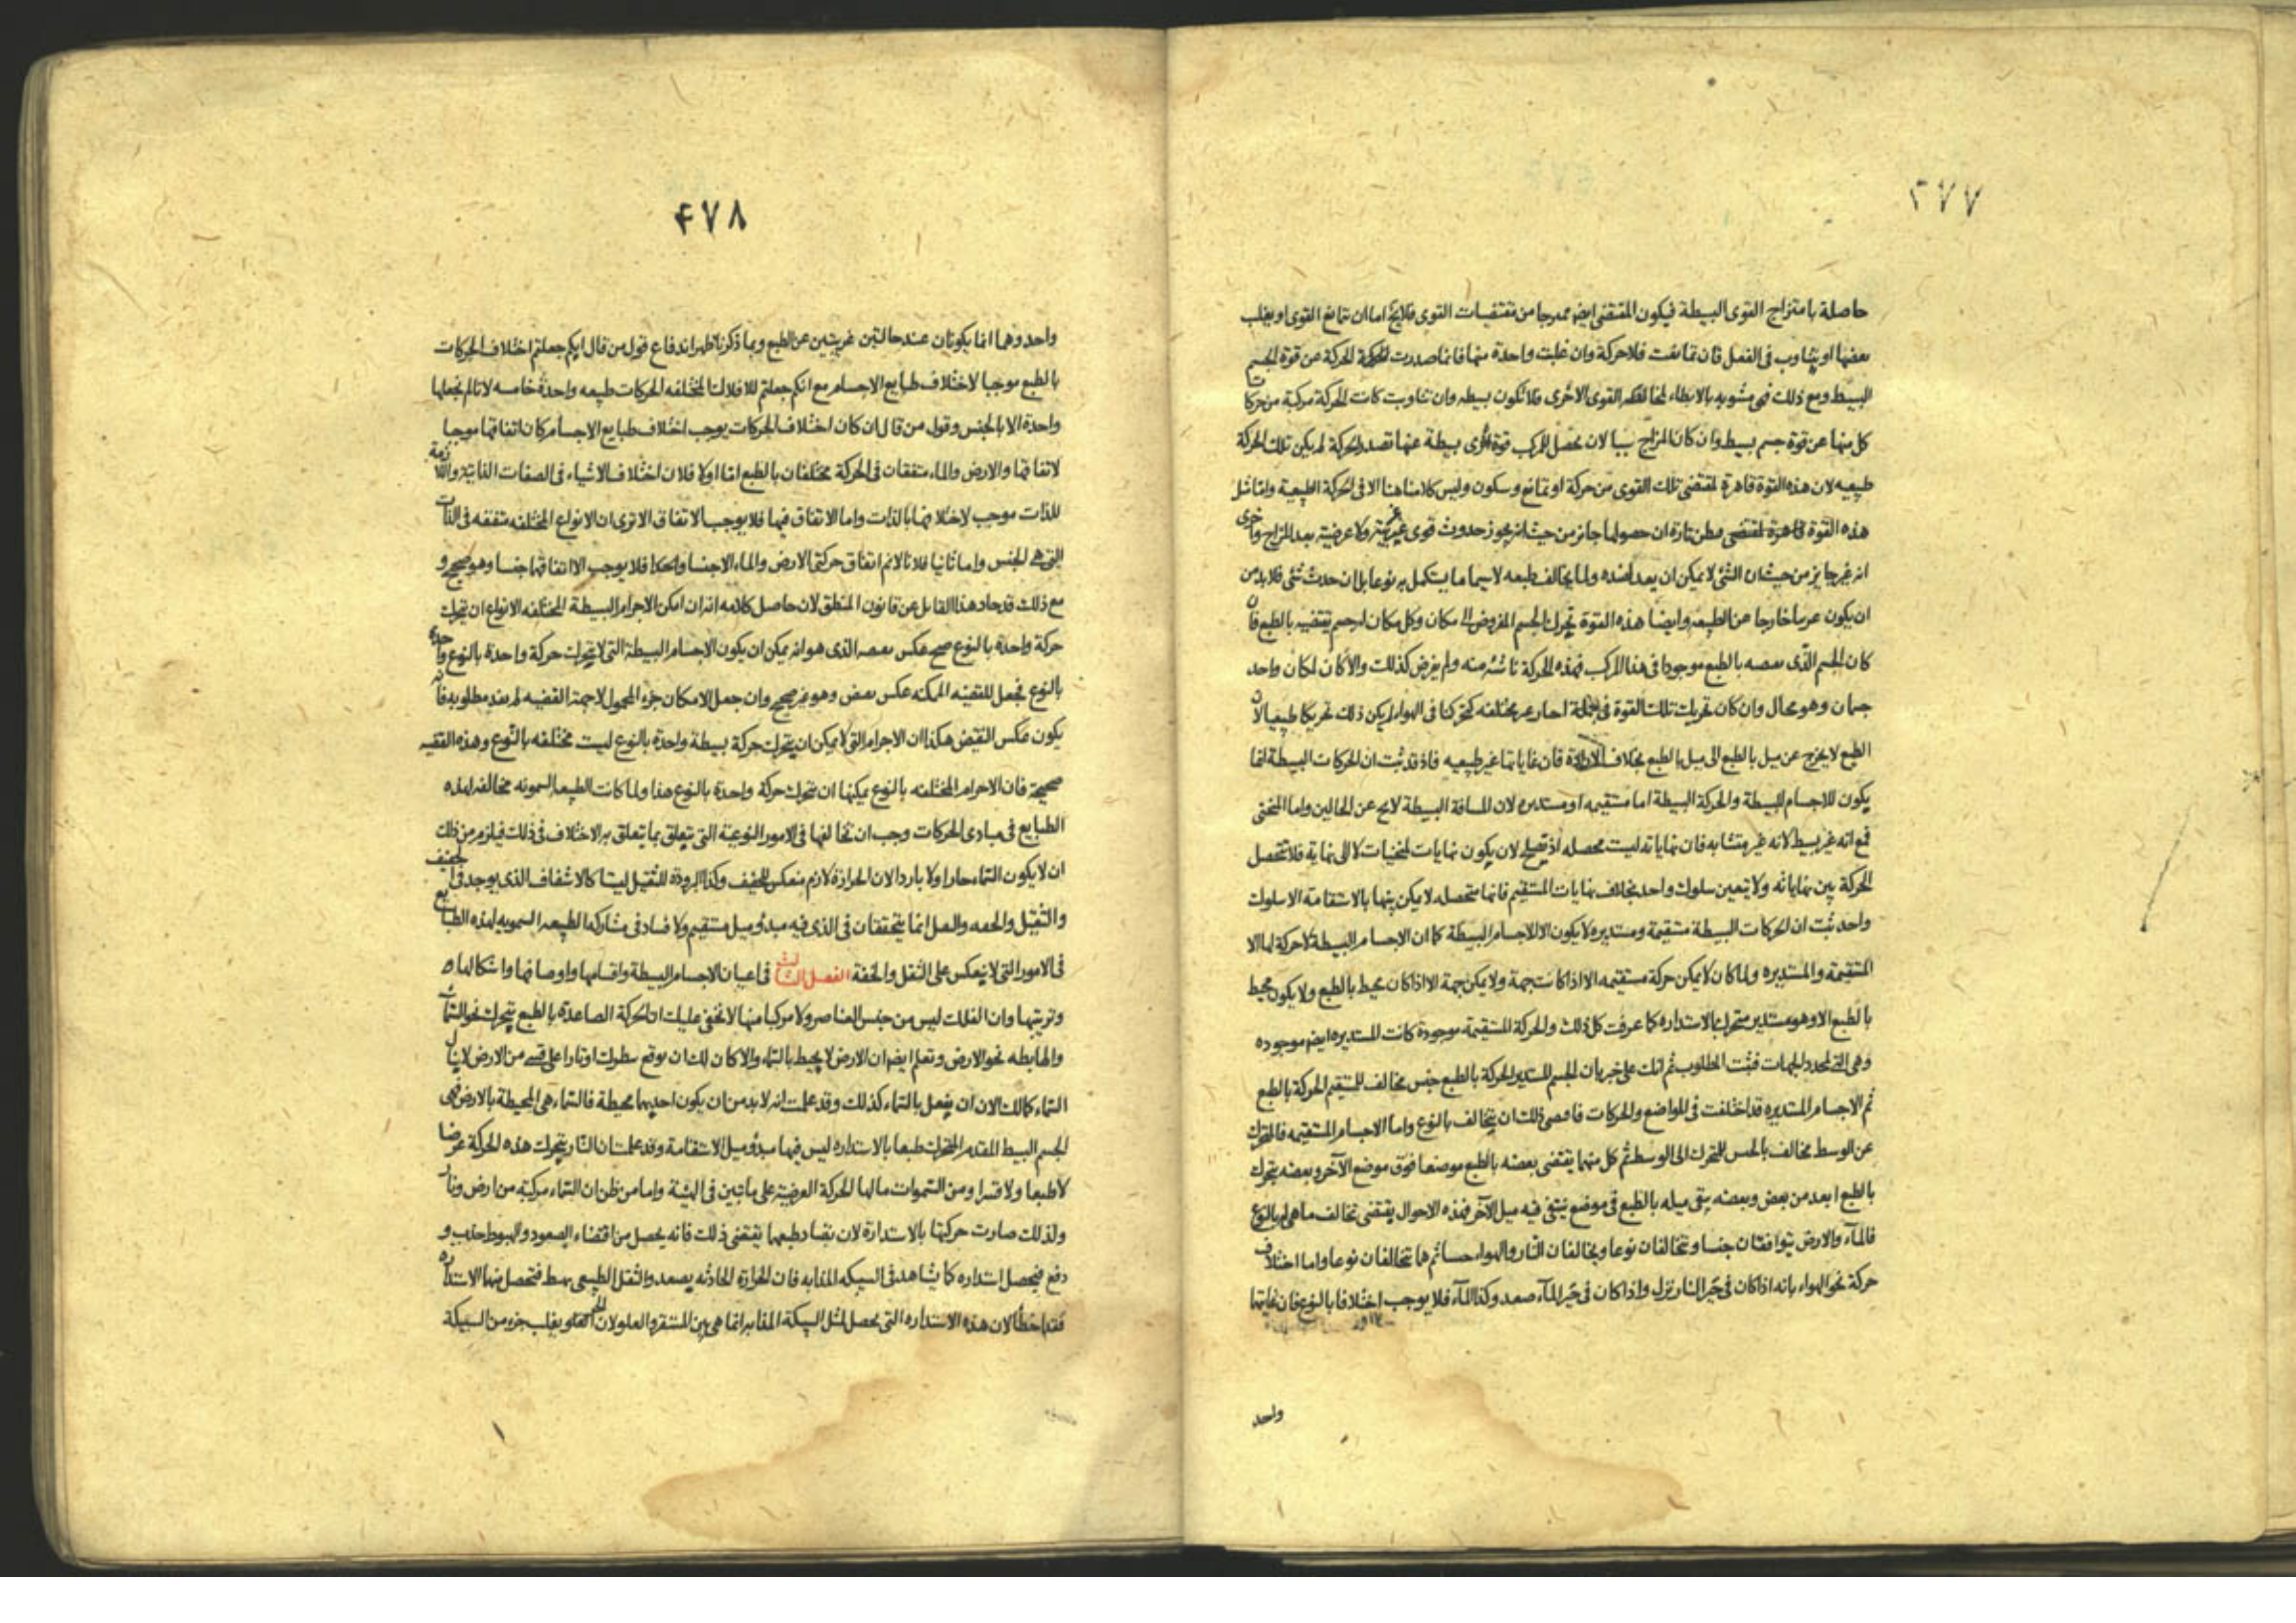 ٤٧٧
حاصلة بامتزاج القوى البسيطة فيكون المقتضى ايضا ممزوجا من مقتضيات القوى فلا يخ اما ان تتمانع القوى او يغلب
بعضها او يتناوب فى الفعل فان تمانعت فلا حركة وان غلبت واحدة منها فانما صدرت الحركة عن قوة الجسم
البسيط ومع ذلك فهى مشوبه بالابطاء لمخالفه القوى الاخرى فلا تكون بسيطه وان تناوبت كانت الحركة مركبة من حركات
كل منها عن قوة جسم بسيط وان كان المزاج سببا لان يحصل للمركب قوة اخرى بسيطة عنها تصدر الحركة لم يكن تلك الحركة
طبيعيه لان هذه القوة قاهرة لمقتضى تلك القوى من حركة او تمانع وسكون وليس كلامنا هنا الا فى الحركة الطبيعية وامثال
هذه القوة تارة ان حصولها جائز من حيث انه يجوز حدوث قوى غير غريبة ولا عرضية بعد المزاج واخرى
انه غير جايز من حيث ان الشئ لا يمكن ان يعد لضده ولما يخالف طبعه لا سيما ما يستكمل به نوعا بل ان حدث شئ فلا بد من
ان يكون خارجا عن الطبيعه وايضا هذه القوة تحرك الجسم المفروض الى مكان وكل مكان له جسم يقتضيه بالطبع فان
كان الجسم الذى بالطبع موجودا فى هذا المركب فهذه الحركة ناشئة منه ولم يفرض كذلك والا كان لمكان واحد
جسمان وهو محال وان كان تحريك تلك القوة فى مختلفه كتحركنا فى الهواء لم يكن ذلك تحريكا طبيعيا لان
الطبع لا يخرج عن ميل بالطبع الى ميل بالطبع بخلاف الارادة فان غاياتها غير طبيعيه فاذ قد ثبت ان الحركات البسيطة انما
يكون للاجسام البسيطة والحركة البسيطة اما مستقيمه او مستديره لان المسافة البسيطة لا يخ عن الحالين واما المنحنى
فمع انه غير بسيط لانه غير متشابه فان نهاياته ليست محصله اذ يصلح لان يكون نهايات لمنحنيات لا الى نهاية فلا تتحصل
الحركة بين نهاياته ولا يتعين سلوك واحد بخلاف نهايات المستقيم فانها متحصله لا يمكن بينها بالاستقامة الا سلوك
واحد ثبت ان الحركات البسيطة مستقيمة ومستديره لا يكون الا للاجسام البسيطة كما ان الاجسام البسيطة لا حركة لها الا
المستقيمة والمستديره ولما كان لا يمكن حركة مستقيمه الا اذا كانت جهة ولا يمكن جهة الا اذا كان محيط بالطبع ولا يكون محيط
بالطبع الا وهو مستدير متحرك بالاستداره كما عرفت كل ذلك والحركة المستقيمة موجودة كانت المستديره ايضا موجوده
وهى التى لمحدد الجهات فثبت المطلوب ثم انك على خبر بان الجسم المستدير الحركة بالطبع جنس مخالف للمستقيم الحركة بالطبع
ثم الاجسام المستديره قد اختلفت فى المواضع والحركات ذلك ان يتخالف بالنوع واما الاجسام المستقيمه فالمتحرك
عن الوسط مخالف بالجنس للمتحرك الى الوسط ثم كل منهما يقتضى بعضه بالطبع موضعا فوق موضع الآخر وبعضه يتحرك
بالطبع ابعد من بعض وبعضه يبقى ميله بالطبع فى موضع ينتفى فيه ميل الآخر فهذه الاحوال يقتضى تخالف ما هى له بالنوع
فالماء والارض يتوافقان جنسا وتتخالفان نوعا ويخالفان النار والهواء جنسا ثم هما تتخالفان نوعا واما اختلاف
حركة نحو الهواء بانه اذا كان فى حيز النار نزل واذا كان فى حيز الماء صعد وكذا الماء فلا يوجب اختلافا بالنوع فان غايتها
واحد
٤٧٨
واحد وهما انما يكونان عند حالتين غريبتين عن الطبع وبما ذكرنا ظهر اندفاع قول من قال انكم جعلتم اختلاف الحركات
بالطبع موجبا لاختلاف طبايع الاجسام مع انكم جعلتم للافلاك المختلفه الحركات طبيعه واحدة خامسه لانا لم نجعلها
واحدة الا بالجنس وقول من قال ان كان اختلاف الحركات يوجب اختلاف طبايع الاجسام كان اتفاقها موجبا
لاتفاقها والارض والماء متفقان فى الحركة مختلفان بالطبع اما اولا فلان اختلاف الاشياء فى الصفات الذاتية واللازمة
للذات موجب لاختلافها بالذات واما الاتفاق فيها فلا يوجب الاتفاق الا ترى ان الانواع المختلفه متفقه فى الذات
التى هى الجنس واما ثانيا فلانا لا نم اتفاق حركتى الارض والماء الا جنسا وهكذا فلا يوجب الا اتفاقهما جنسا وهو صحيح و
مع ذلك قد حاد هذا القايل عن قانون المنطق لان حاصل كلامه انه ان امكن الاجرام البسيطة المختلفه الانواع ان يتحرك
حركة واحدة بالنوع صح عكس الذى هو انه يمكن ان يكون الاجسام البسيطة التى لا يتحرك حركة واحدة بالنوع واحدة
بالنوع فجعل للقضيه الممكنه عكس نقيض وهو غير صحيح وان جعل الامكان جزء المحمول لا جهة القضيه لم يفد مطلوبه فانه
يكون عكس النقيض هكذا ان الاجرام التى لا يمكن ان يتحرك حركة بسيطة واحدة بالنوع ليست مختلفه بالنوع وهذه القضيه
صحيحة فان الاجرام المختلفه بالنوع يمكنها ان تتحرك حركة واحدة بالنوع هذا ولما كانت الطبيعه السمويه مخالفه لهذه
الطبايع فى مبادى الحركات وجب ان تخالفها فى الامور النوعية التى يتعلق بما يتعلق به الاختلاف فى ذلك فيلزم من ذلك
ان لا يكون السماء حارا ولا باردا لان الحرارة لازم منعكس للخفيف وكذا البرودة للثقيل ليستا كالاشفاف الذى يوجد فى الخفيف
والثقيل والخفه والثقل انما يتحققان فى الذى فيه مبدء ميل مستقيم ولا فساد فى مشاركه الطبيعه السمويه لهذه الطبايع
فى الامور التى لا ينعكس على الثقل والخفة الفصل الثالث فى اعيان الاجسام البسيطة واقسامها واوصافها واشكالها
وترتيبها وان الفلك ليس من جنس العناصر ولا مركبا منها لا يخفى عليك ان الحركة الصاعدة بالطبع يتحرك نحو السماء
والهابطه نحو الارض وتعلم ايضا ان الارض لا يحيط بالسماء والا كان لك ان توقع بسطوك اوتارا على قسى من الارض لا ينال
السماء كما لك الان ان يفعل بالسماء كذلك وقد علمت انه لا بد من ان يكون احديهما محيطة فالسماء هى المحيطة بالارض فهى
الجسم البسيط المقدم المتحرك طبعا بالاستداره ليس فيها مبدء ميل الاستقامة وقد علمت ان النار يتحرك هذه الحركة عرضا
لا طبعا ولا قسرا ومن السموات ما لها الحركة العرضية على ما تبين فى الهيئة واما من ظن ان السماء مركبة من ارض ونار
ولذلك صارت حركتها بالاستدارة لان تضاد طبعهما يقتضى ذلك فانه يحصل من اقتضاء الصعود والهبوط جذب و
دفع فيحصل استداره كما يشاهد فى السبيكه المذابه فان الحرارة الحادثه يصعد والثقل الطبيعى يهبط فتحصل منهما الاستداره
فقد اخطأ لان هذه الاستداره التى يحصل لمثل السبيكة المذابه انما هى بين المستقر والعلو لان يغلب جزء من السبيكة